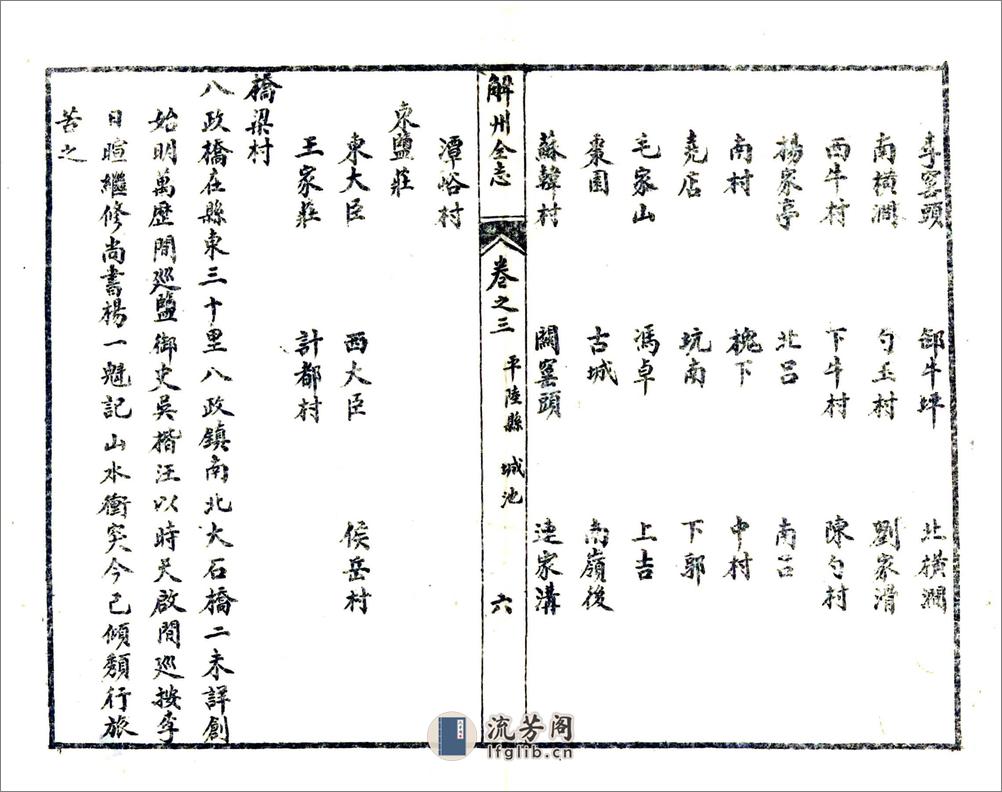 李窰頭 卸牛坪 北橫澗
南橫澗 勺王村 劉家滑
西牛村 下牛村 陳勺村
楊家亭 北呂 南呂
南村 槐下 中村
堯店 坑南 下郭
毛家山 馮卓 上吉
棗園 古城 南嶺後
蘇韓村 關窰頭 連家溝
解州全志 卷之三 平陸縣 城池 六
潭峪村
東鹽莊
東大臣 西大臣 侯岳村
王家莊 計都村
橋梁村
八政橋在縣東三十里八政鎮南北大石橋二未詳創
始明萬歷間廵鹽御史吳楷汪以時天啟間廵按李
日暄繼修尚書楊一魁記山水衝突今已傾頽行旅
苦之
流芳阁
lfglib.cn